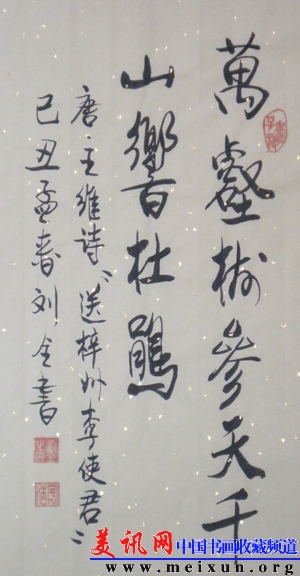 萬壑树參天千
山響杜鵑
唐·王维诗“送梓州李使君”
己丑孟春刘全書
美讯网 中国书画收藏频道
www.meixun.org